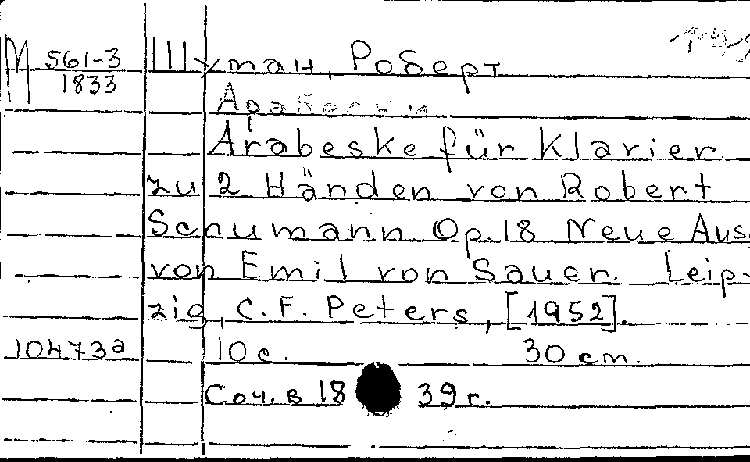 М 561-3
1833
Шуман, Роберт
Арабески
Arabeske für Klavier
zu 2 Händen von Robert
Schumann Op.18 Neue Aus
von Emil von Sauer. Leip-
zig, C. F. Peters, [1952].
10473а 10 с. 30 cm.
Соч. в 18 39 г.